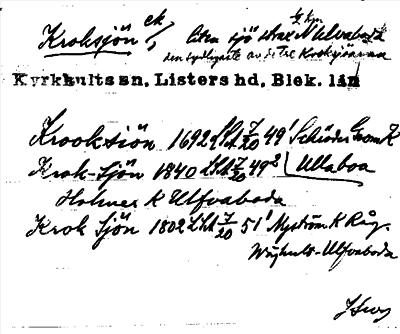 Kroksjön ek/ Liten sjö strax N Ulvaboda ½ km
den sydligaste av de tre Kroksjöarna
Kyrkhults sn, Listers hd, Blek. län
Krooksiön 1692 LSA 7/20 49¹ Schüder Geom. K
Krok-Sjön 1840 LSA 7/20 49² Ullaboa
Holmer K Ulfvaboda
Krok Sjön 1802 LSA 7/20 51¹ Myström K Rå.
-Ulfvaboda